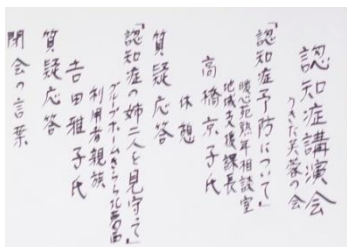 認知症講演会
うきた芙蓉の会
「認知症予防について」
暖心苑熟年相談室
地域支援課長
高橋京子氏
休憩
質疑応答
「認知症の姉二人を見守って」
グループホームきらら北葛西
利用者親族
吉田雅子氏
質疑応答
閉会の言葉